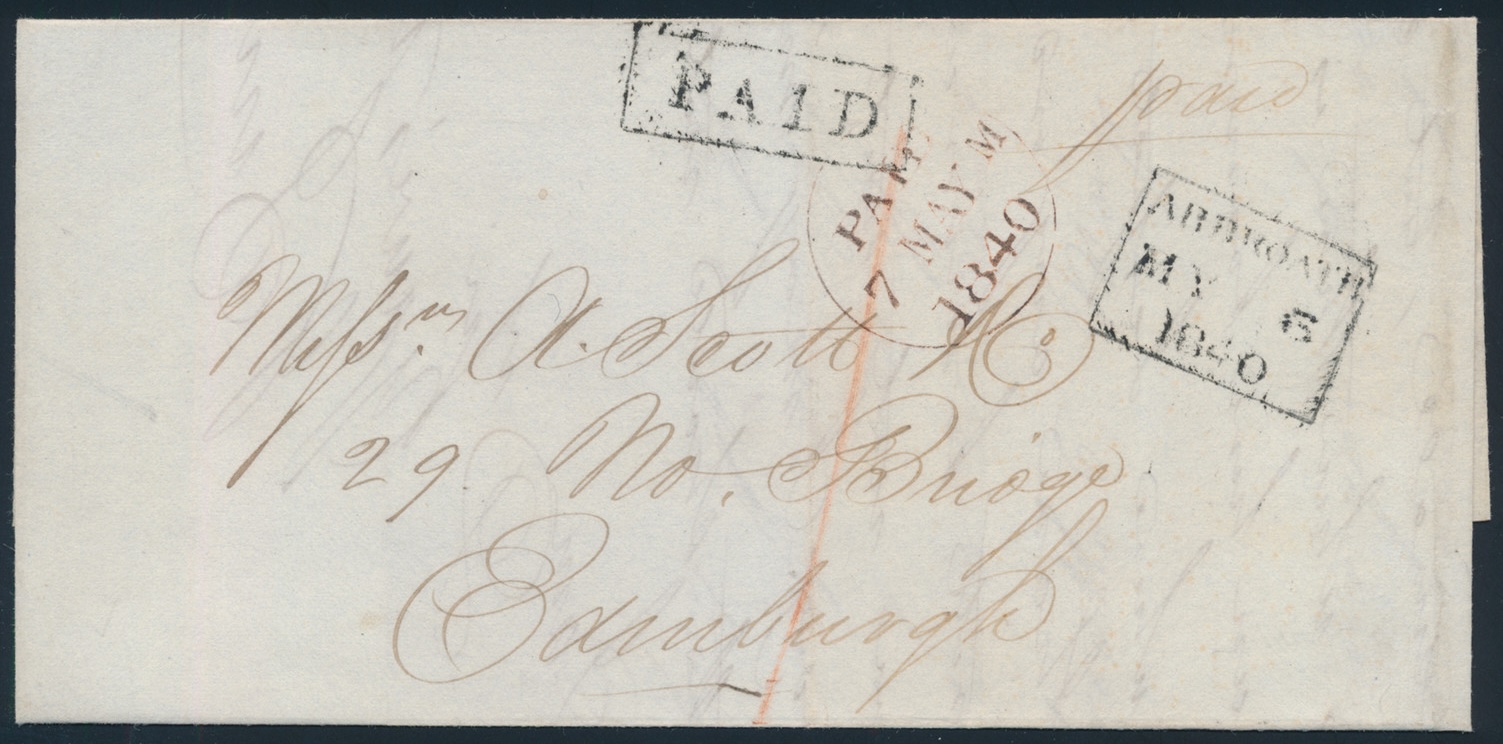 PAID
paid
PAID
7 MAY M
1840
ARBROATH
MY 6
1840
Messrs. A. Scott & Co
29 No. Bridge
Edinburgh